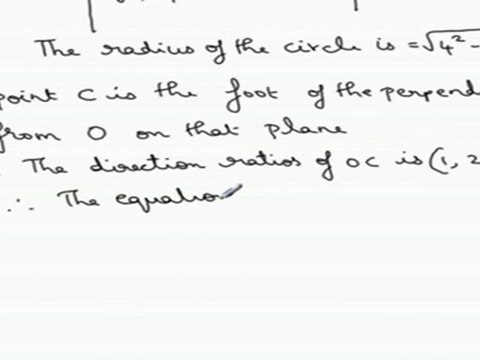 The radius of the circle is = √4² -
point C is the foot of the perpend
from O on that plane
The direction ratios of OC is (1, 2
∴ The equation